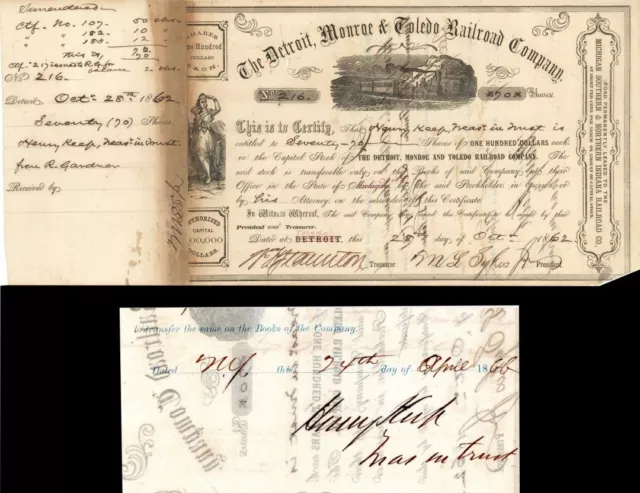 Surrendered
Ctf. No. 107. 50 shs.
" 182. 10 "
" 183. 12 "
72
70
No 216.
Detroit, Oct. 28th 1862
Seventy (70) Shares,
Henry Keep, Treasr in trust.
from R. Gardner
Received by
SHARES
One Hundred
DOLLARS
EACH.
AUTHORIZED
CAPITAL
DOLLARS
The Detroit, Monroe & Toledo Railroad Company.
No. 216. 70 Shares.
This is to Certify, That Henry Keep, Treasr in trust is
entitled to Seventy - 70 Shares of ONE HUNDRED DOLLARS each
in the Capital Stock of THE DETROIT, MONROE AND TOLEDO RAILROAD COMPANY. The
said stock is transferable only on the Books of said Company at their
Office in the State of Michigan by the said Stockholder in person or
by his Attorney on the surrender of this Certificate.
In Witness Whereof, The said Company have caused this Certificate to be signed by their
President and Treasurer.
Dated at DETROIT, this 28th day of Oct. 1862
Treasurer. M L Sykes Jr President.
ROAD PERMANENTLY LEASED TO THE
MICHIGAN SOUTHERN & NORTHERN INDIANA RAILROAD CO.
to transfer the same on the Books of the Company.
Dated NY this 24th day of April 1866
Henry Keep
Treas in trust